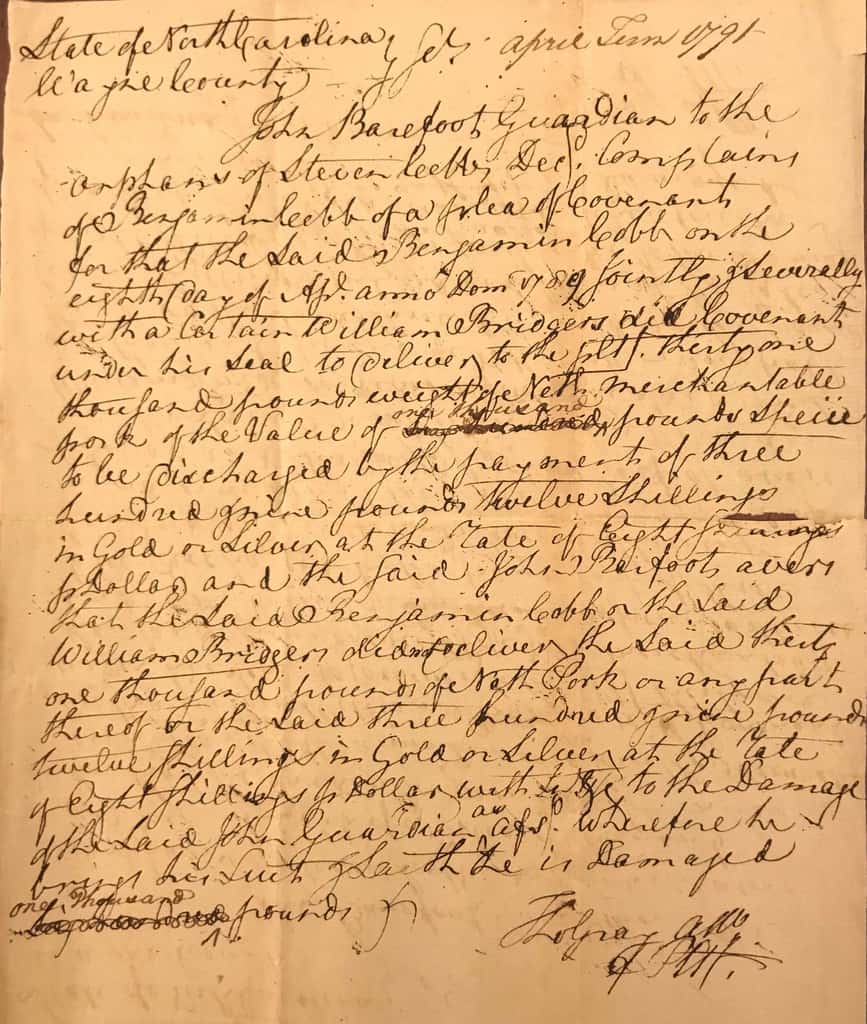 State of North Carolina } Sct. April Term 1791
Wayne County }
John Barefoot Guardian to the
orphans of Steven Cobb, Decd. Complains
of Benjamin Cobb of a plea of Covenant
for that the Said Benjamin Cobb on the
eighth day of Apl. anno Dom 1789 Jointly & Severally
with a Certain William Bridgers did Covenant
under his Seal to deliver to the pltf. thirty one
thousand pounds weight of Neth. merchantable
one thousand
pork of the Value of pounds Specie
to be discharged by the payment of three
hundred & nine pounds twelve Shillings
in Gold or Silver at the rate of Eight
p Dollar and the Said John Barefoot avers
that the Said Benjamin Cobb or the Said
William Bridgers did not deliver the Said thirty
one thousand pounds of Neth Pork or any part
thereof or the Said three hundred & nine pounds
twelve Shillings in Gold or Silver at the rate
of Eight Shillings p Dollar with to the Damage
of the Said John Guardian as afsd. Wherefore he
brings his Suit & Saith he is Damaged
one thousand
pounds &
Tho Gray atto
of Pltf.